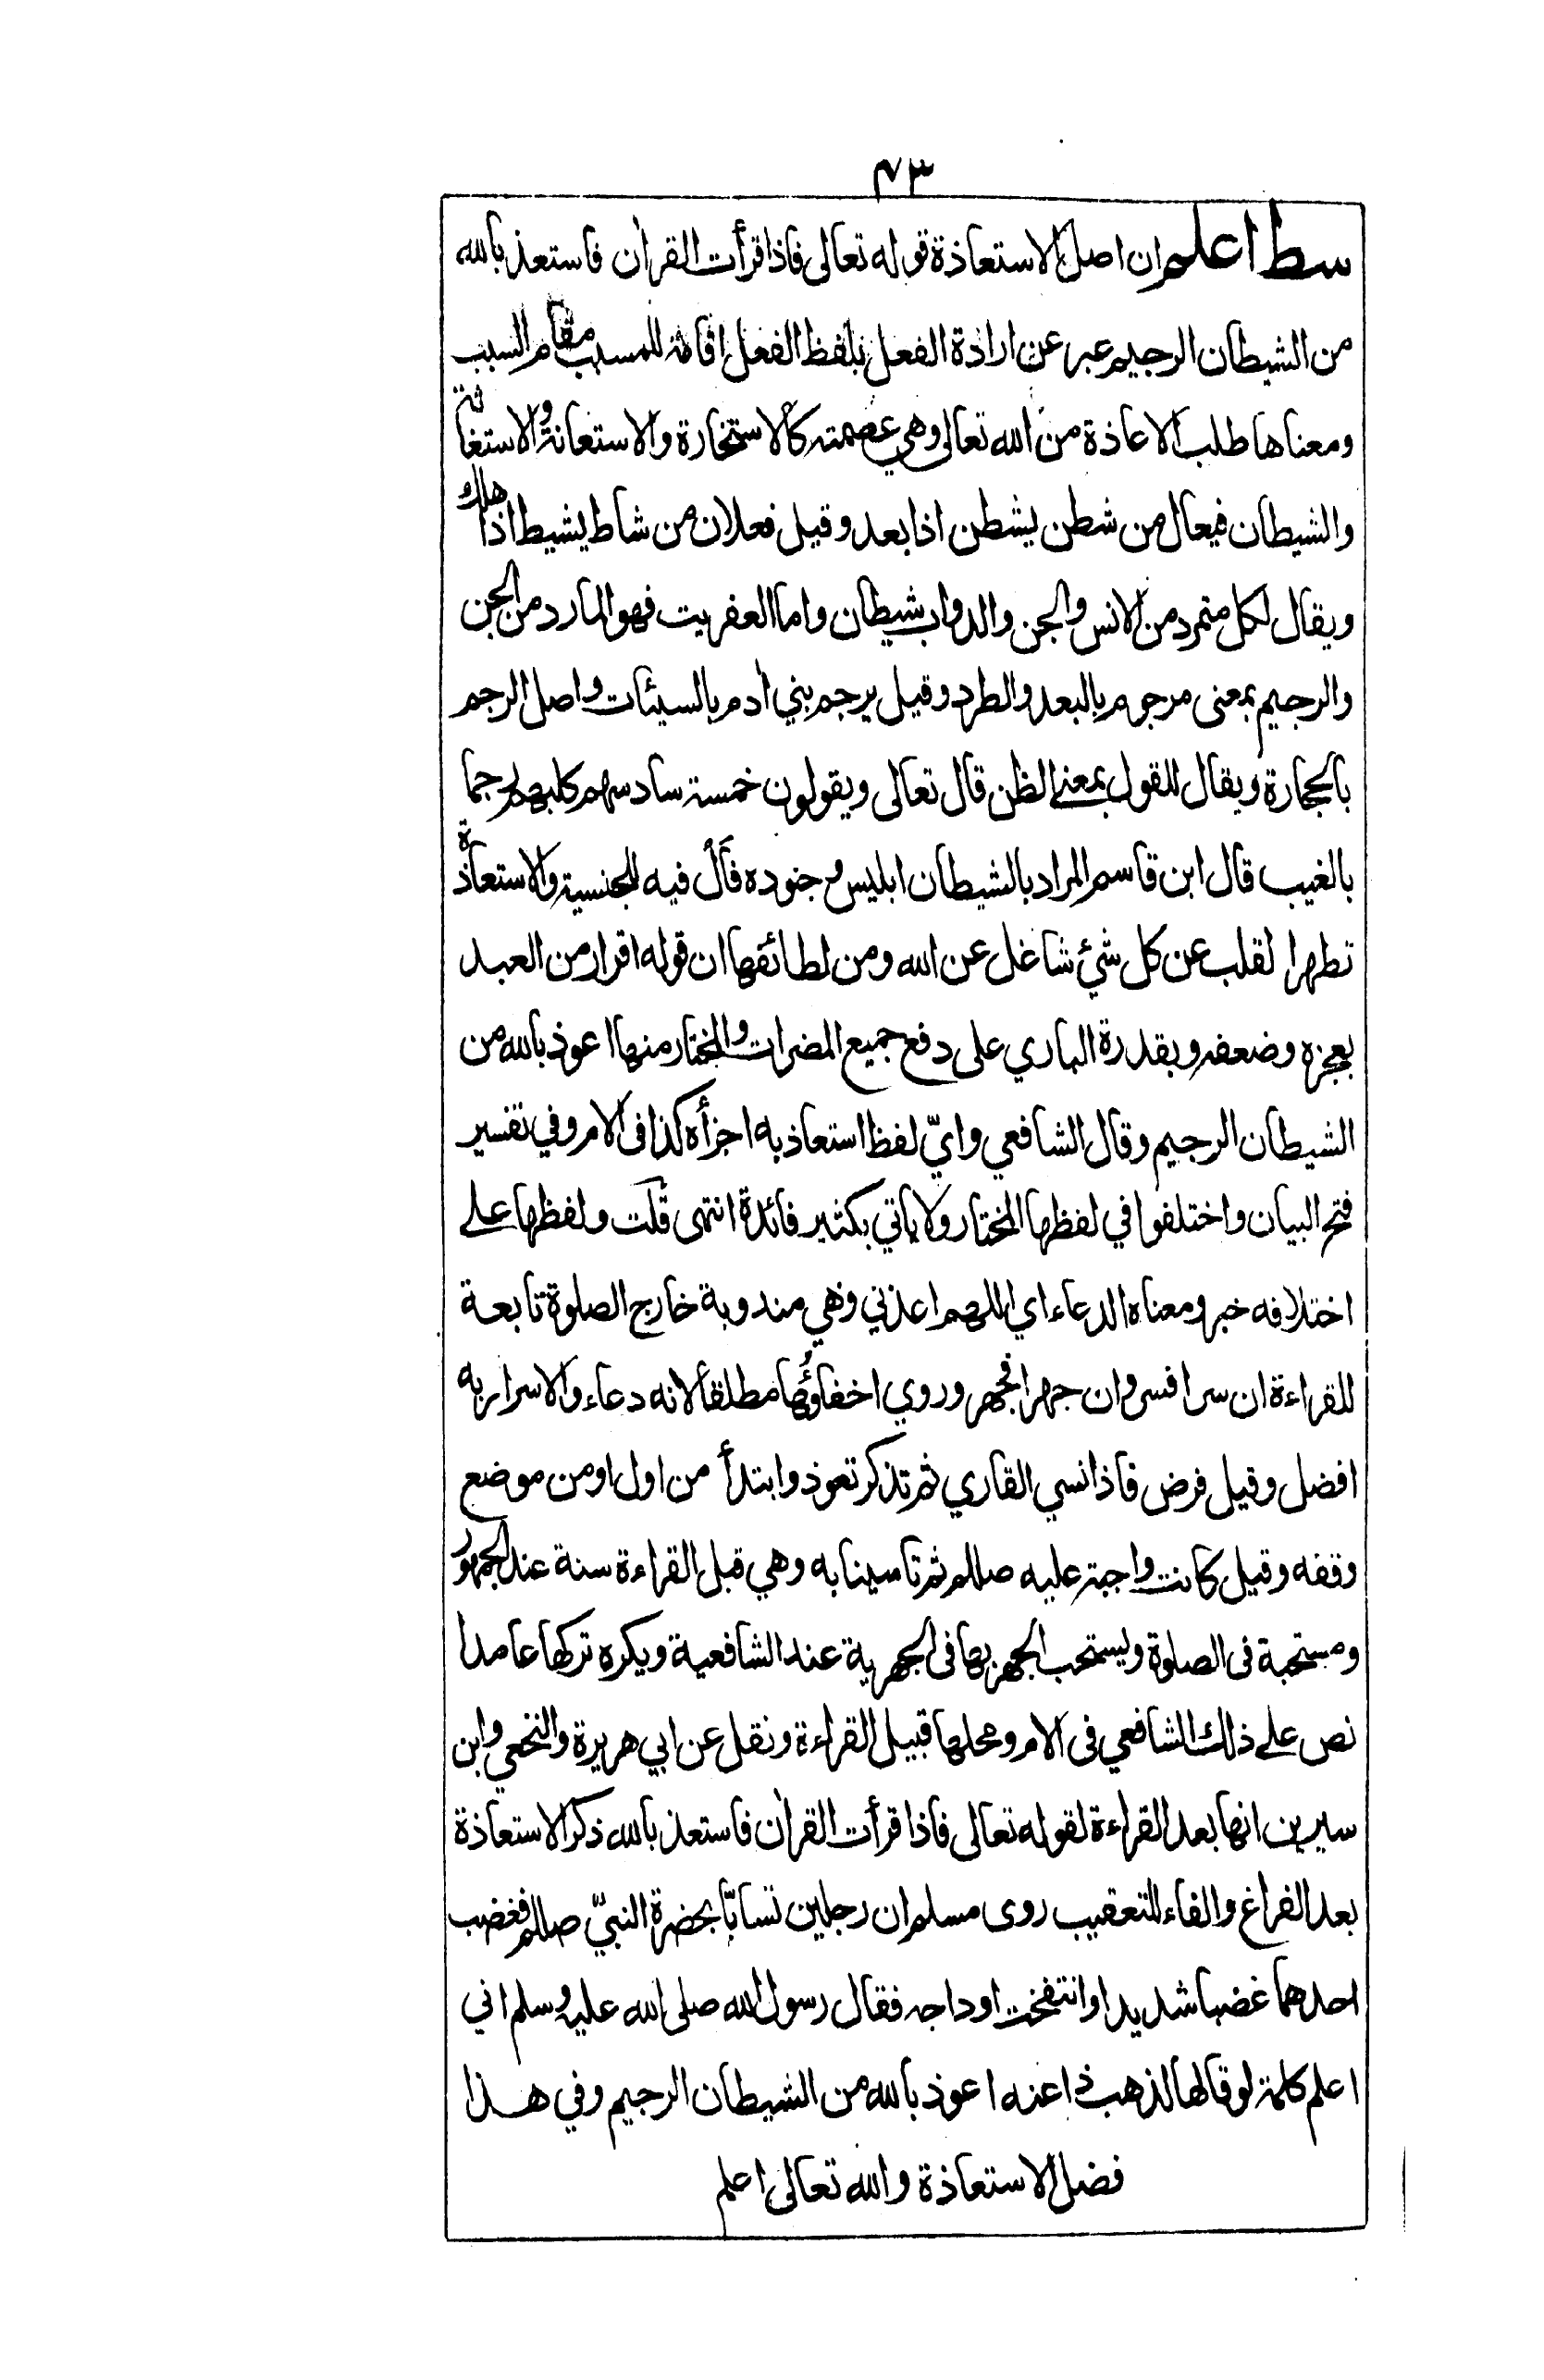 ٧٣
سط اعلم ان اصل الاستعاذة قوله تعالى فاذا قرأت القرآن فاستعذ بالله
من الشيطان الرجيم عبر عن ارادة الفعل بلفظ الفعل اقامة للمسبب مقام السبب
ومعناها طلب الاعاذة من الله تعالى وهي عصمته كالاستخارة والاستعانة والاستغاثة
والشيطان فيعال من شطن يشطن اذا بعد وقيل فعلان من شاط يشيط اذا هلك
ويقال لكل متمرد من الانس والجن والدواب شيطان واما العفريت فهو المارد من الجن
والرجيم بمعنى مرجوم بالبعد والطرد وقيل يرجم بني آدم بالسيئات واصل الرجم
بالحجارة ويقال للقول بمعنى الظن قال تعالى ويقولون خمسة سادسهم كلبهم رجما
بالغيب قال ابن قاسم المراد بالشيطان ابليس وجنوده فَاَلْ فيه للجنسية والاستعاذة
تطهر القلب عن كل شئ شاغل عن الله ومن لطائفها ان قوله اقرار من العبد
بعجزه وضعفه وبقدرة الباري على دفع جميع المضرات والمختار منها اعوذ بالله من
الشيطان الرجيم وقال الشافعي وايّ لفظ استعاذ به اجزأه كذا في الام وفي تفسير
فتح البيان واختلفوا في لفظها المختار ولا ياتي بكثير فائدة انتهى قلت ولفظها على
اختلافه خبر ومعناه الدعاء اي اللهم اعذني وهي مندوبة خارج الصلوة تابعة
للقراءة ان سرا فسر وان جهرا فجهر وروي اخفاؤُها مطلقاً لانه دعاء والاسرار به
افضل وقيل فرض فاذا نسي القاري ثم تذكر تعوذ وابتدأ من اول او من موضع
وقفه وقيل كانت واجبة عليه صللم ثم تاسينا به وهي قبل القراءة سنة عند الجمهور
ومستحبة في الصلوة ويستحب الجهر بها في الجهرية عند الشافعية ويكره تركها عامدا
نص على ذلك الشافعي في الام ومحلها قبيل القراءة ونقل عن ابي هريرة والنخعي وابن
سيرين انها بعد القراءة لقوله تعالى فاذا قرأت القرآن فاستعذ بالله ذكر الاستعاذة
بعد الفراغ والفاء للتعقيب روى مسلم ان رجلين تسابّا بحضرة النبيّ صللم فغضب
احدهما غضبا شديدا وانتفخت اوداجه فقال رسول الله صلى الله عليه وسلم اني
اعلم كلمة لو قالها لذهب ذا عنه اعوذ بالله من الشيطان الرجيم وفي هذا
فضل الاستعاذة والله تعالى اعلم